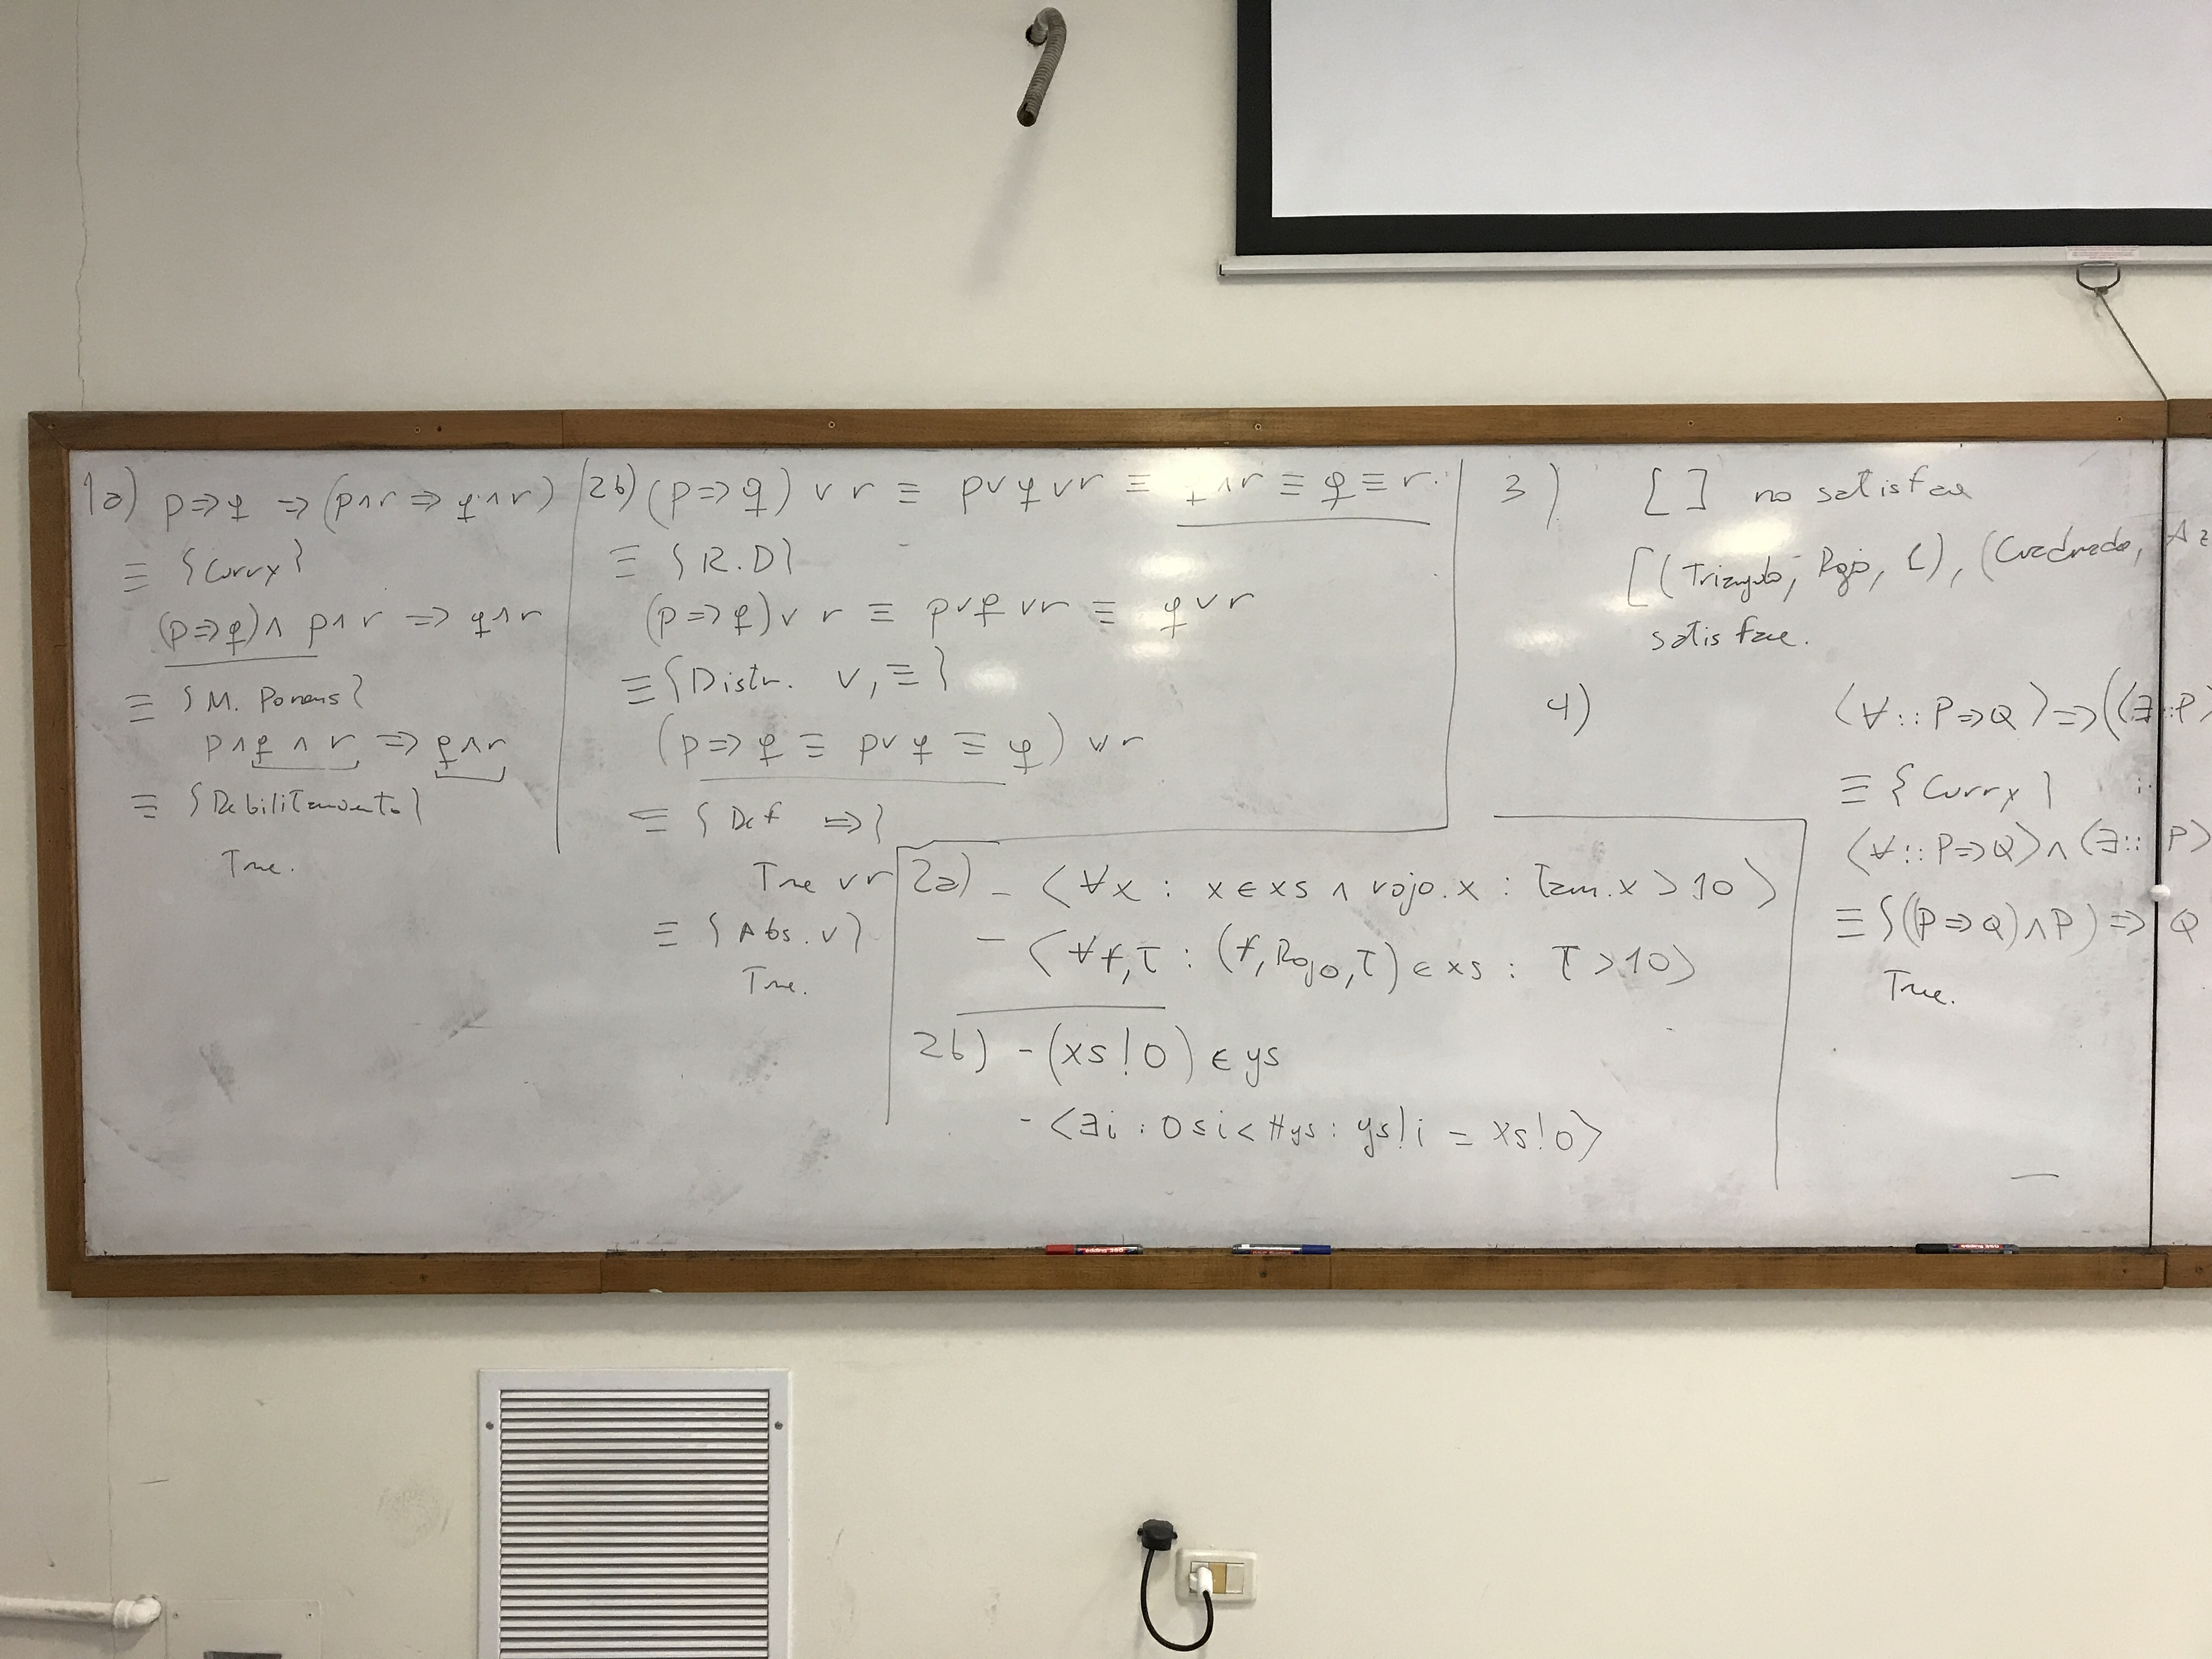 1a) p ⇒ q ⇒ (p ∧ r ⇒ q ∧ r)
≡ {Curry}
(p ⇒ q) ∧ p ∧ r ⇒ q ∧ r
≡ {M. Ponens}
p ∧ q ∧ r ⇒ q ∧ r
≡ {Debilitamiento}
True.
2b) (p ⇒ q) ∨ r ≡ p ∨ q ∨ r ≡ q ∧ r ≡ q ≡ r.
≡ {R.D}
(p ⇒ q) ∨ r ≡ p ∨ q ∨ r ≡ q ∨ r
≡ {Distr. ∨, ≡}
(p ⇒ q ≡ p ∨ q ≡ q) ∨ r
≡ {Def ⇒}
True ∨ r
≡ {Abs. ∨}
True.
2a) - ⟨∀x : x ∈ xs ∧ rojo.x : Tam.x > 10⟩
- ⟨∀f,T : (f, Rojo, T) ∈ xs : T > 10⟩
2b) - (xs!0) ∈ ys
- ⟨∃i : 0 ≤ i < #ys : ys!i = xs!0⟩
3) [ ] no satisface
[(Triangulo, Rojo, 1), (Cuadrado, Az
satisface.
4) ⟨∀ :: P ⇒ Q⟩ ⇒ (⟨∃ :: P⟩
≡ {Curry}
⟨∀ :: P ⇒ Q⟩ ∧ ⟨∃ :: P⟩
≡ {(P ⇒ Q) ∧ P) ⇒ Q
True.
edding 360
edding 360